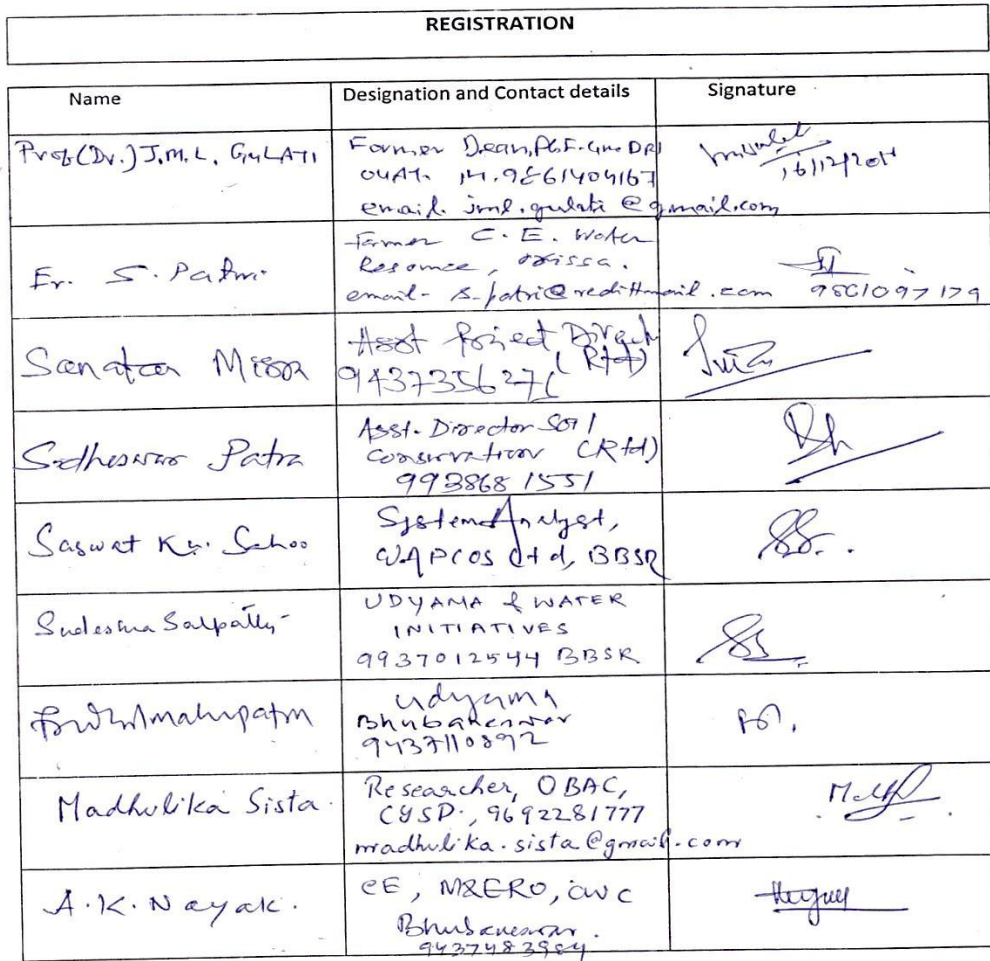 REGISTRATION
Name
Designation and Contact details
Signature
Prof(Dr.) J.M.L. GULATI
Former Dean, PGF-cum DRI
OUAT. M. 9861404167
email. jml.gulati @gmail.com
16/12/2011
Er. S. Patri
Former C. E. Water
Resource, Orissa.
email- s.patri@rediffmail.com
9861097179
Sanatan Misra
Asst Project Direct
(Rtd)
9437356276
Sidheswar Patra
Asst. Director Soil
Conservation (Rtd)
9938681551
Saswat Ku. Sahoo
System Analyst,
WAPCOS Ltd, BBSR
Sudeshna Satpathy
UDYAMA & WATER
INITIATIVES
9937012544 BBSR
Udyama
Bhubaneswar
9437110892
Madhulika Sista.
Researcher, OBAC,
CYSD., 9692281777
madhulika.sista@gmail.com
A.K. Nayak.
CE, M&ERO, CWC
Bhubaneswar.
9437483984